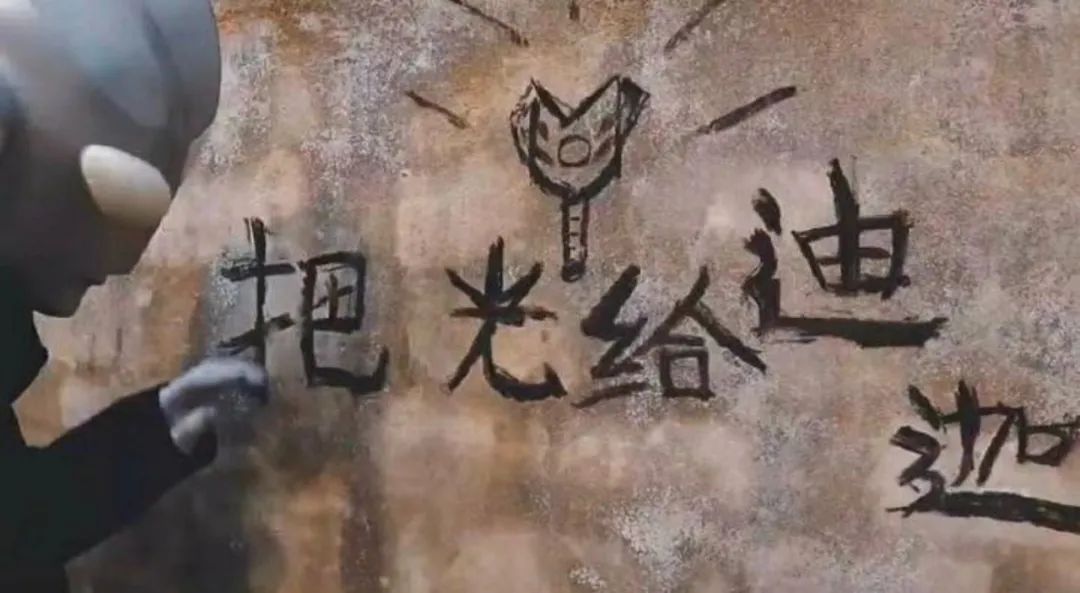 把光给迪迦